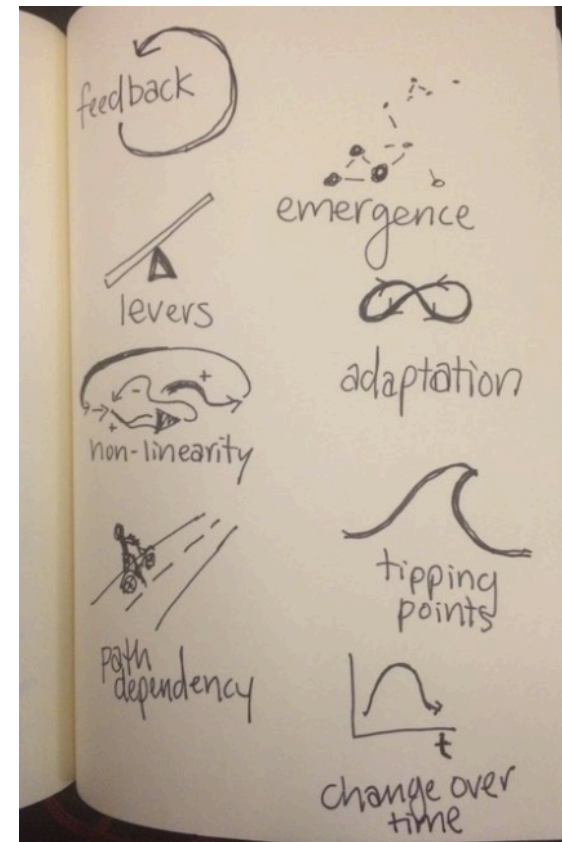 feedback
levers
+
-
+
non-linearity
path
dependency
emergence
adaptation
tipping
points
t
change over
time